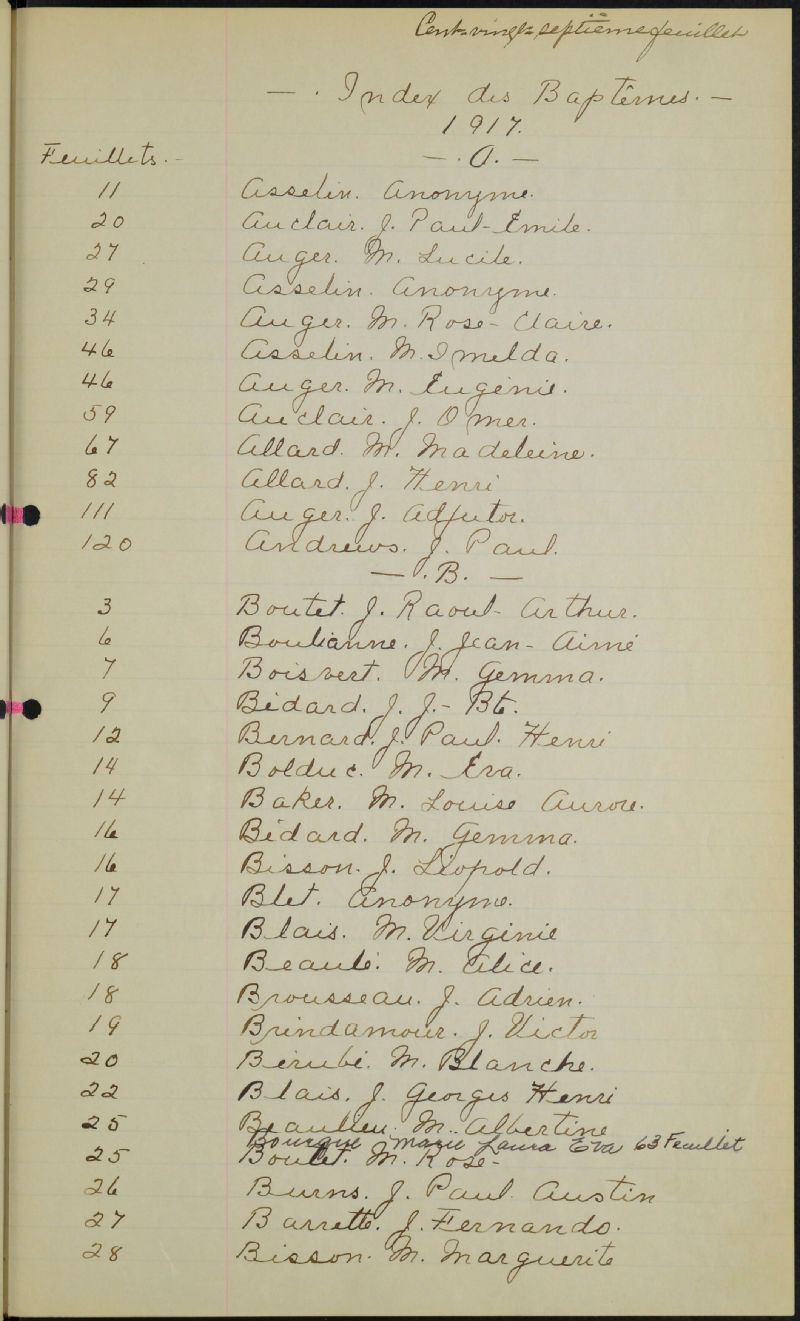 Cent-vingt-septième feuillet
— . Index des Baptêmes. —
1917.
Feuillets. -
— . A. —
11 Asselin. Anonyme.
20 Auclair. J. Paul-Emile.
27 Auger. M. Lucile.
29 Asselin. Anonyme.
34 Auger. M. Rose-Claire.
46 Asselin. M. Imelda.
46 Auger. M. Eugénie.
59 Auclair. J. Omer.
67 Allard. M. Madeleine.
82 Allard. J. Henri
111 Auger. J. Adjutor.
120 Andrews. J. Paul.
— . B. —
3 Boutet. J. Raoul-Arthur.
6 Boulianne. J. Jean-Aimé
7 Boisvert. M. Gemma.
9 Bédard. J. J.-Bte.
12 Bernard. J. Paul. Henri
14 Bolduc. M. Eva.
14 Baker. M. Louise Aurore.
16 Bédard. M. Gemma.
16 Bisson. J. Léopold.
17 Blet. Anonyme.
17 Blais. M. Virginie
18 Beaulé. M. Alice.
18 Brousseau. J. Adrien.
19 Brindamour. J. Victor
20 Bérubé. M. Blanche.
22 Blais. J. Georges Henri
25 Beaulieu. M. Albertine
Bourque Marie Laura Eva 63 Feuillet
25 Boulet. M. Rose-
26 Burns. J. Paul Austin
27 Barrette. J. Fernando.
28 Bisson. M. Marguerite